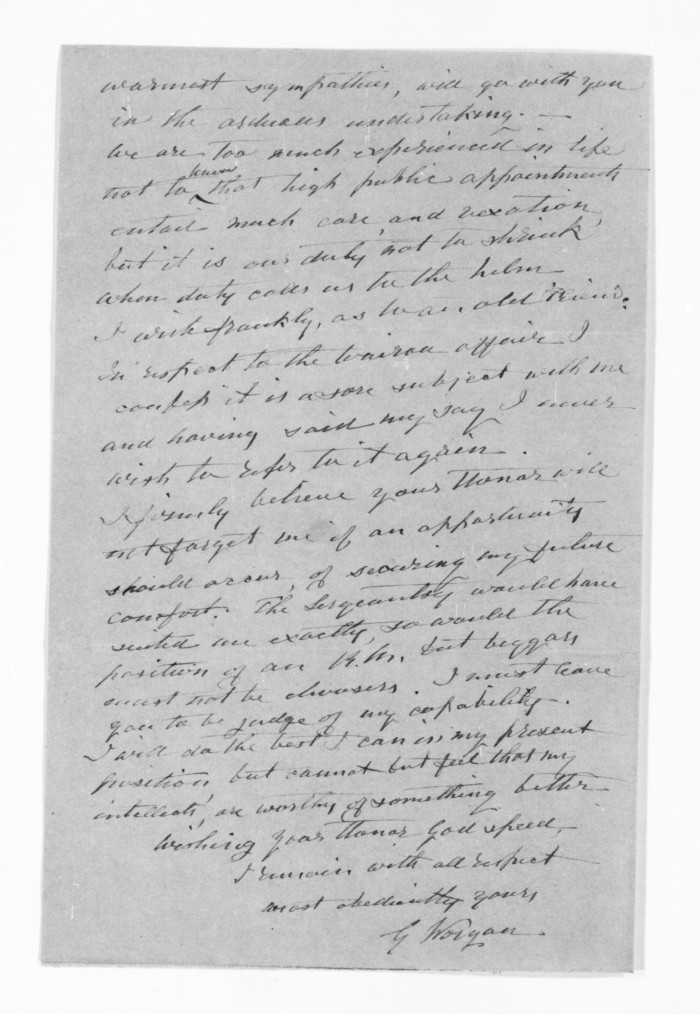 warmest sympathies, will go with you
in the arduous undertaking. —
We are too much experienced in life
not to know that high public appointments
entail much care, and vexation,
but it is our duty not to shrink
when duty calls us to the helm
I write frankly, as to an old friend.
In respect to the Wairau affair I
confess it is a sore subject with me
and having said my say I never
wish to refer to it again.
I firmly believe your Honor will
not forget me if an opportunity
should occur, of securing my future
comfort. The Sergeantship would have
suited me exactly, so would the
position of an R.M. but beggars
must not be choosers. I must leave
you to be judge of my capability.
I will do the best I can in my present
position, but cannot but feel that my
intellects, are worthy of something better
Wishing your Honor God speed,
I remain with all respect
most obediently yours
G Worgan